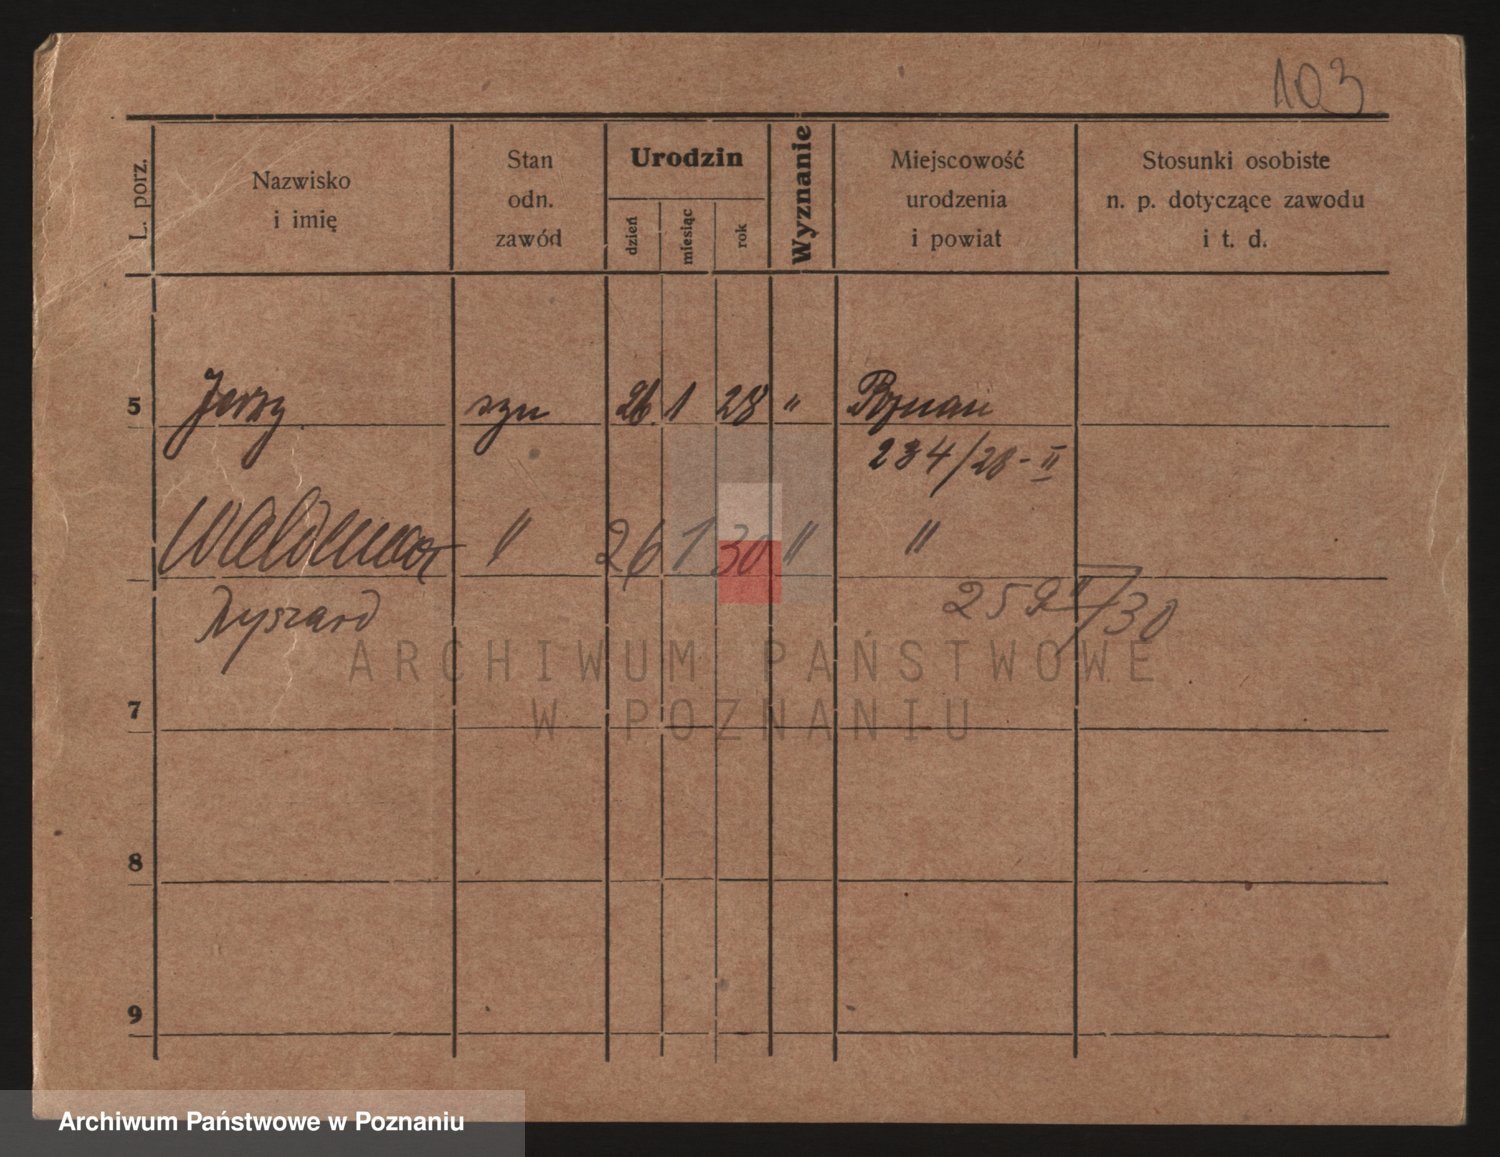 103
L. porz.
Nazwisko
i imię
Stan
odn.
zawód
Urodzin
dzień
miesiąc
rok
Wyznanie
Miejscowość
urodzenia
i powiat
Stosunki osobiste
n. p. dotyczące zawodu
i t. d.
5 Jerzy syn 26 1 28 " Poznań
234/28-II
Waldemar " 26 1 30 " "
Ryszard 259 II/30
ARCHIWUM PAŃSTWOWE
W POZNANIU
7
8
9
Archiwum Państwowe w Poznaniu